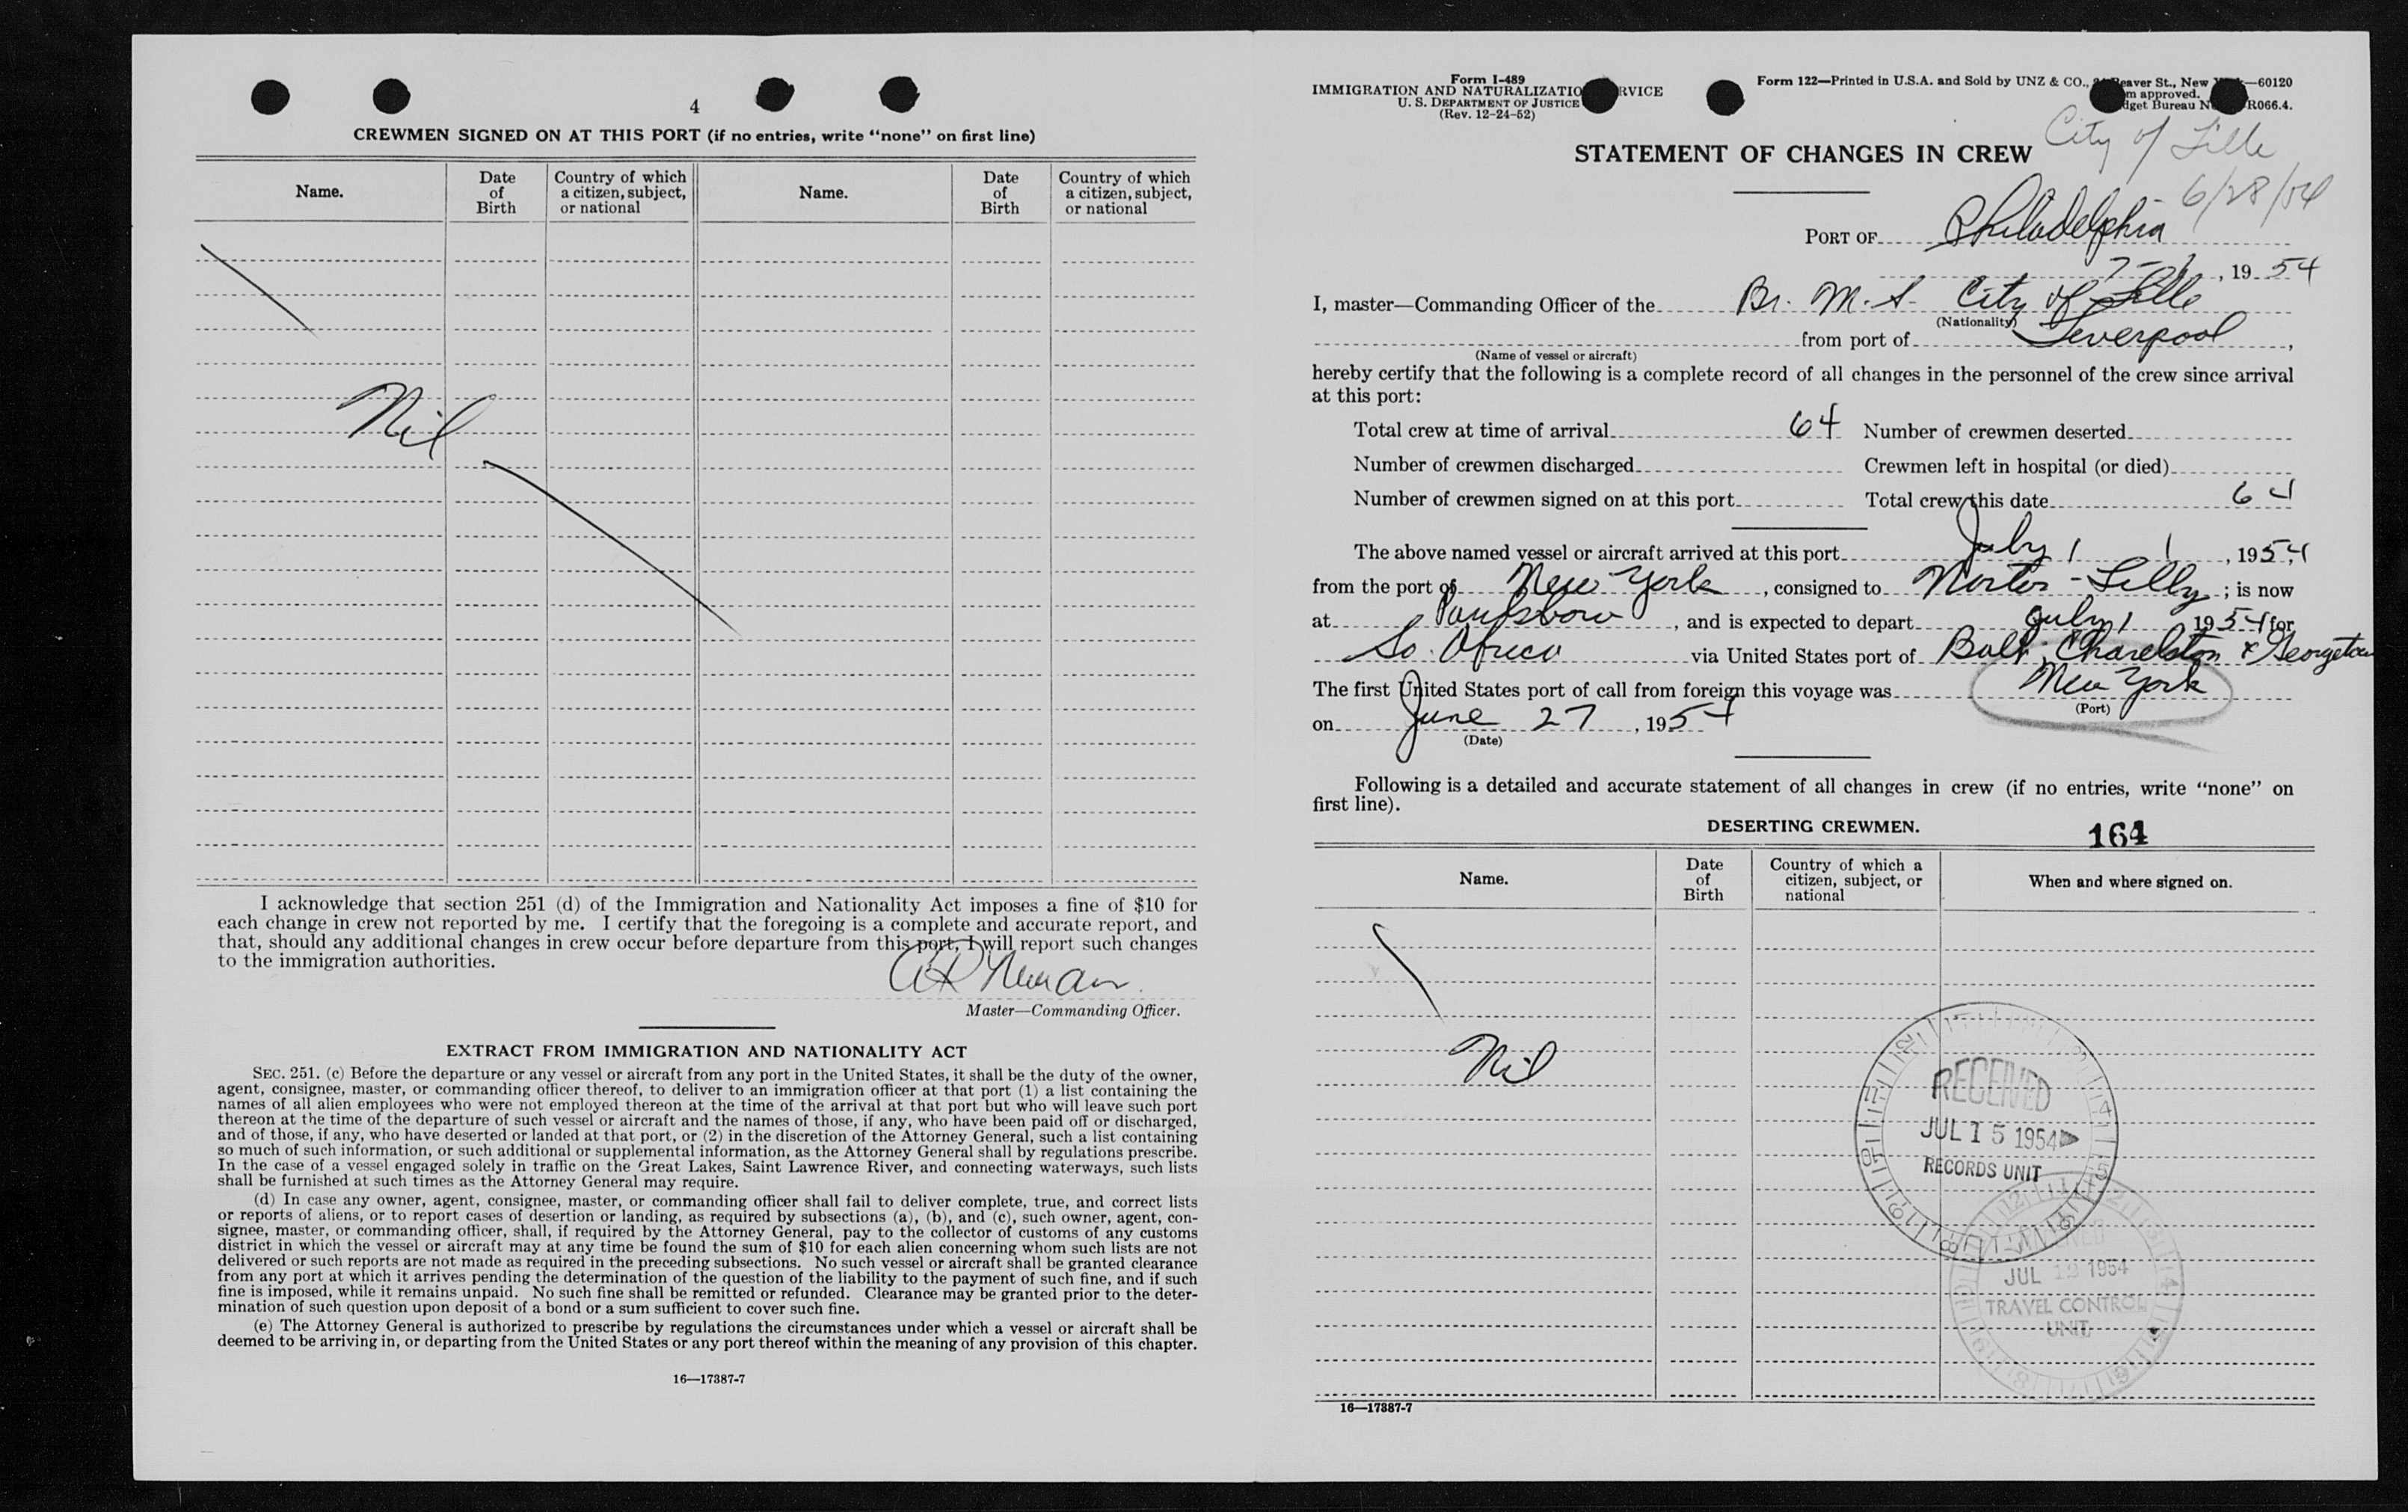 4
CREWMEN SIGNED ON AT THIS PORT (if no entries, write "none" on first line)
Name.
Date of Birth
Country of which a citizen, subject, or national
Name.
Date of Birth
Country of which a citizen, subject, or national
Nil
I acknowledge that section 251 (d) of the Immigration and Nationality Act imposes a fine of $10 for
each change in crew not reported by me. I certify that the foregoing is a complete and accurate report, and
that, should any additional changes in crew occur before departure from this port, I will report such changes
to the immigration authorities.
Master—Commanding Officer.
EXTRACT FROM IMMIGRATION AND NATIONALITY ACT
SEC. 251. (c) Before the departure or any vessel or aircraft from any port in the United States, it shall be the duty of the owner,
agent, consignee, master, or commanding officer thereof, to deliver to an immigration officer at that port (1) a list containing the
names of all alien employees who were not employed thereon at the time of the arrival at that port but who will leave such port
thereon at the time of the departure of such vessel or aircraft and the names of those, if any, who have been paid off or discharged,
and of those, if any, who have deserted or landed at that port, or (2) in the discretion of the Attorney General, such a list containing
so much of such information, or such additional or supplemental information, as the Attorney General shall by regulations prescribe.
In the case of a vessel engaged solely in traffic on the Great Lakes, Saint Lawrence River, and connecting waterways, such lists
shall be furnished at such times as the Attorney General may require.
(d) In case any owner, agent, consignee, master, or commanding officer shall fail to deliver complete, true, and correct lists
or reports of aliens, or to report cases of desertion or landing, as required by subsections (a), (b), and (c), such owner, agent, con-
signee, master, or commanding officer, shall, if required by the Attorney General, pay to the collector of customs of any customs
district in which the vessel or aircraft may at any time be found the sum of $10 for each alien concerning whom such lists are not
delivered or such reports are not made as required in the preceding subsections. No such vessel or aircraft shall be granted clearance
from any port at which it arrives pending the determination of the question of the liability to the payment of such fine, and if such
fine is imposed, while it remains unpaid. No such fine shall be remitted or refunded. Clearance may be granted prior to the deter-
mination of such question upon deposit of a bond or a sum sufficient to cover such fine.
(e) The Attorney General is authorized to prescribe by regulations the circumstances under which a vessel or aircraft shall be
deemed to be arriving in, or departing from the United States or any port thereof within the meaning of any provision of this chapter.
16—17387-7
Form I-489
IMMIGRATION AND NATURALIZATIO RVICE
U. S. DEPARTMENT OF JUSTICE
(Rev. 12-24-52)
Form 122—Printed in U.S.A. and Sold by UNZ & CO., eaver St., New —60120
m approved.
dget Bureau N R066.4.
City of Lille
6/28/54
STATEMENT OF CHANGES IN CREW
PORT OF Philadelphia
7-1, 19 54
I, master—Commanding Officer of the Br. M.S. City of Lille
(Nationality)
from port of Liverpool,
(Name of vessel or aircraft)
hereby certify that the following is a complete record of all changes in the personnel of the crew since arrival
at this port:
Total crew at time of arrival 64 Number of crewmen deserted
Number of crewmen discharged Crewmen left in hospital (or died)
Number of crewmen signed on at this port Total crew this date 64
The above named vessel or aircraft arrived at this port July 1, 1954
from the port of New York, consigned to Norton-Lilly; is now
at Paulsboro, and is expected to depart July 1 1954 for
So. Africa via United States port of Balt, Charelston & Georgetown
The first United States port of call from foreign this voyage was New York
(Port)
on June 27, 1954
(Date)
Following is a detailed and accurate statement of all changes in crew (if no entries, write "none" on
first line).
DESERTING CREWMEN.
164
Name.
Date of Birth
Country of which a citizen, subject, or national
When and where signed on.
Nil
RECEIVED
JUL 15 1954
RECORDS UNIT
JUL 1954
TRAVEL CONTROL
UNIT
16—17387-7